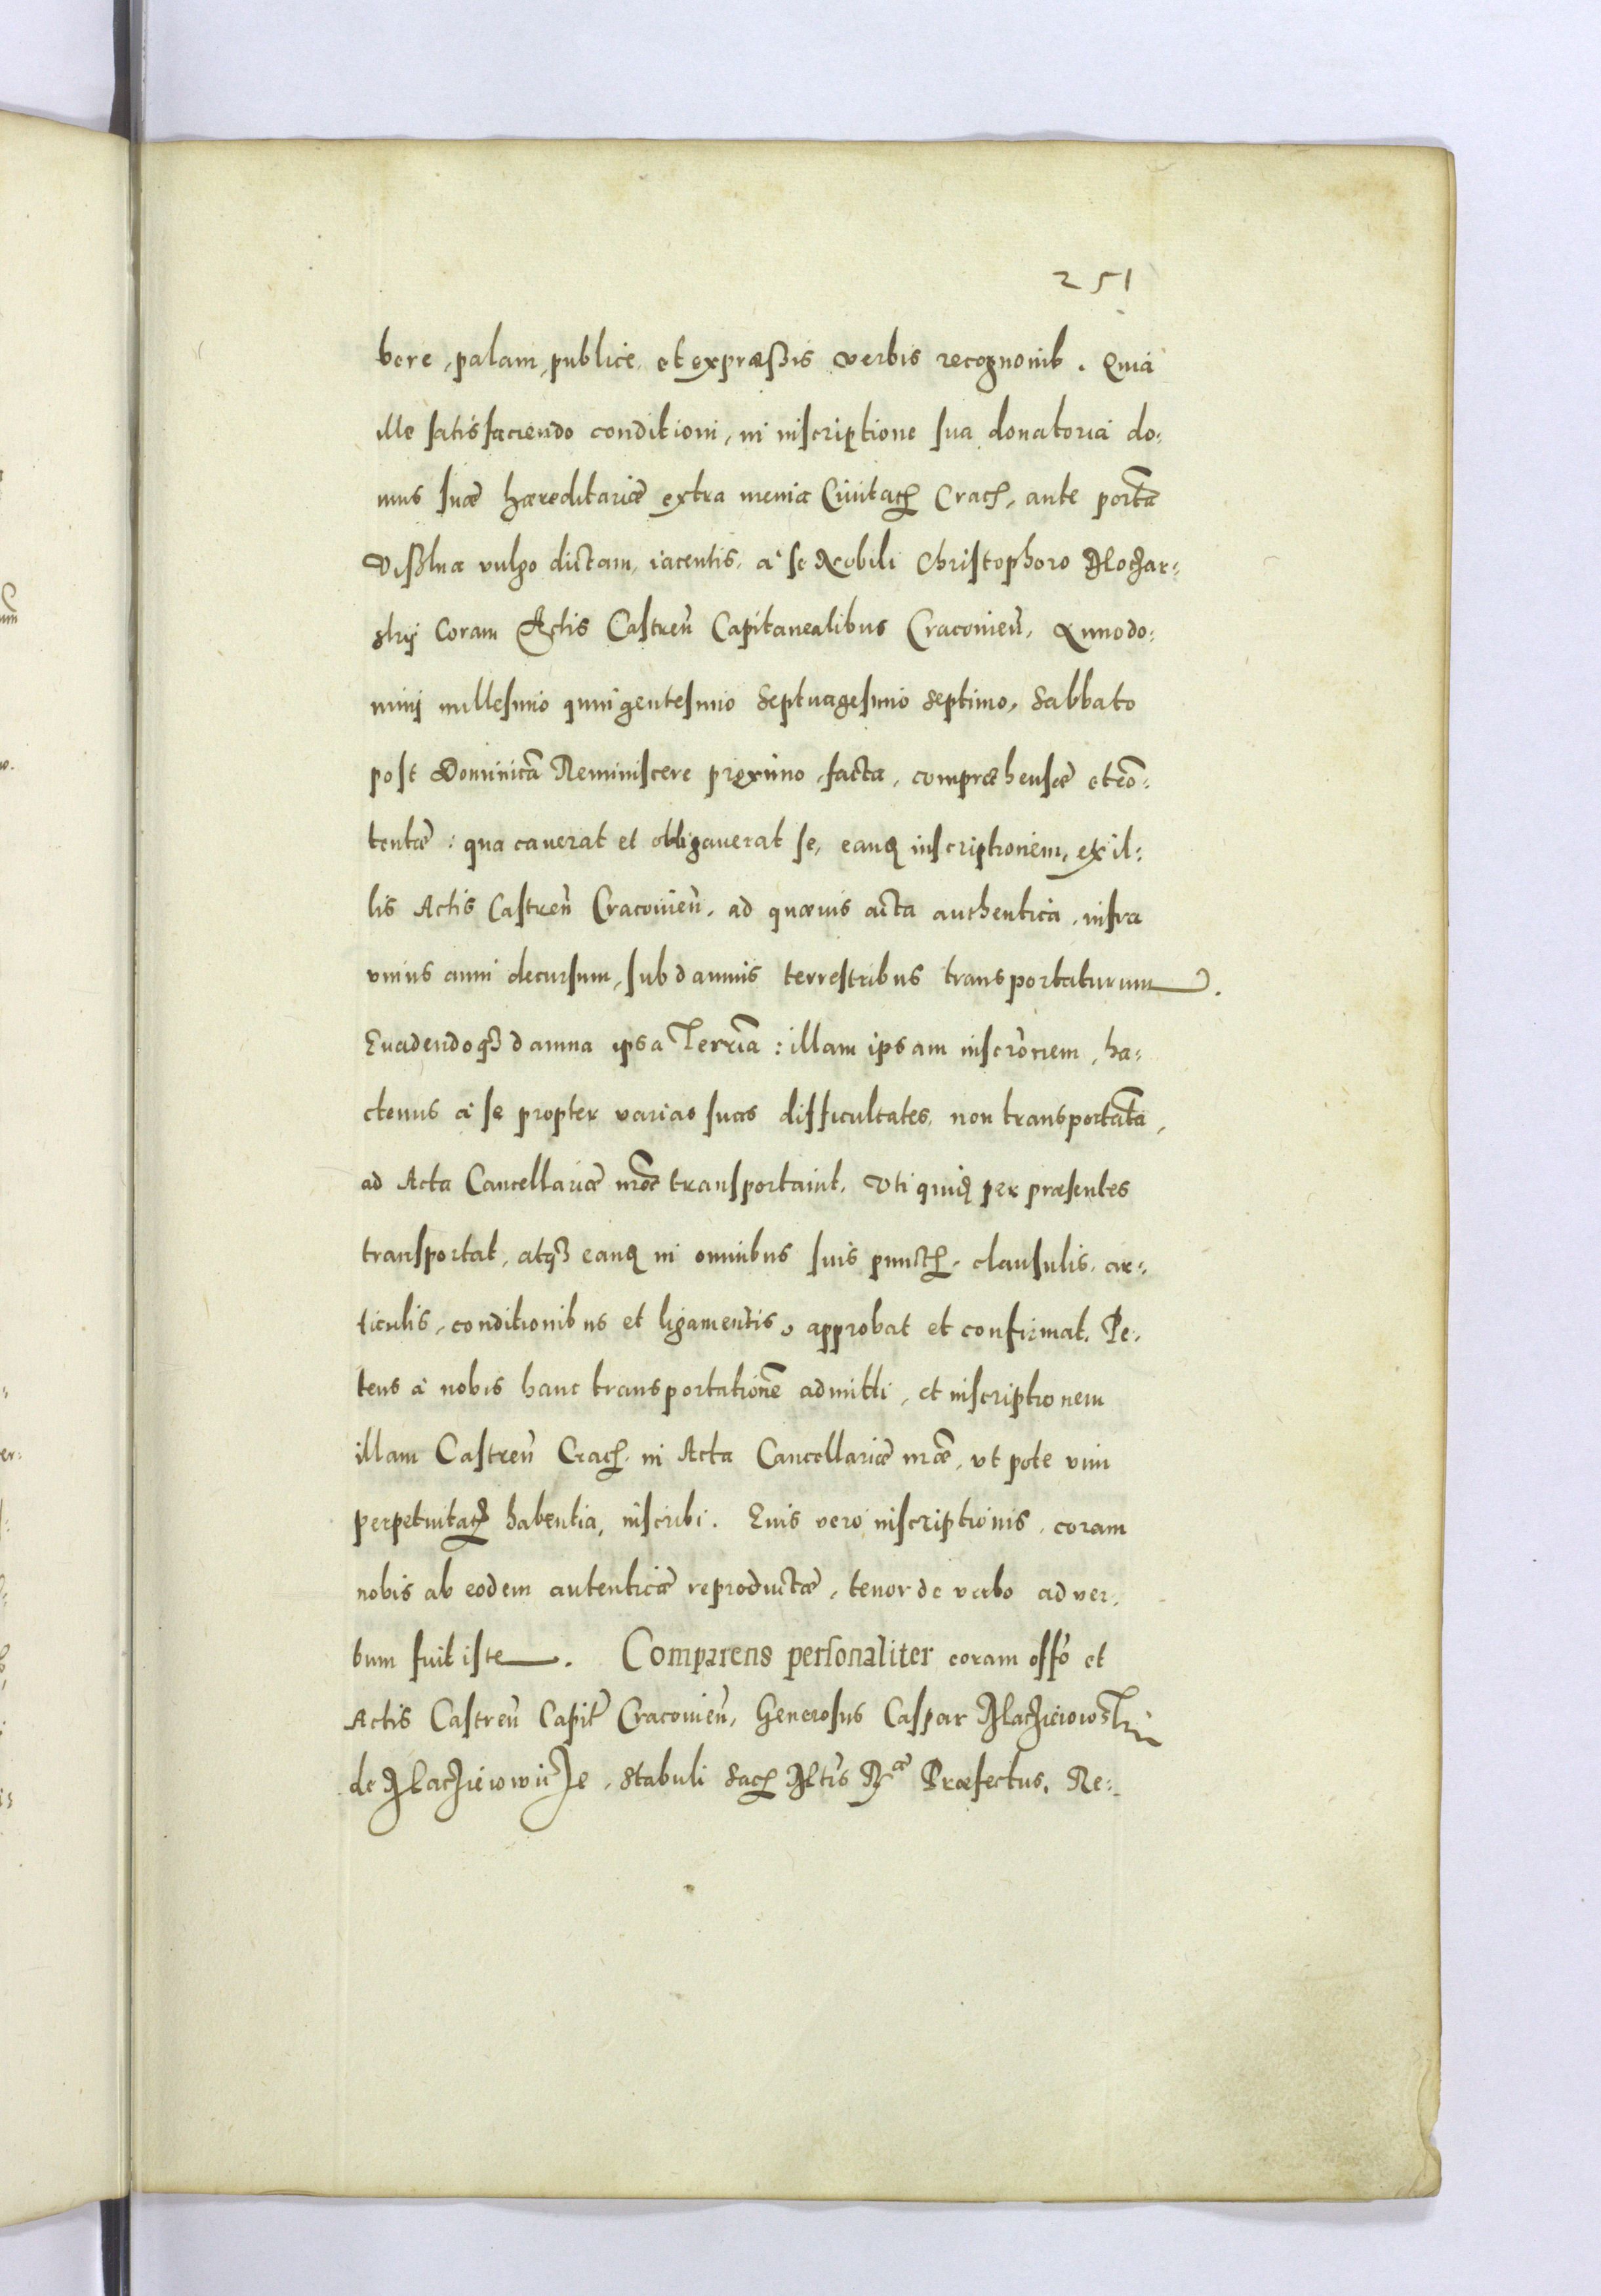 251
bere, palam, publice, et expræssis verbis recognouit. Quia
ille satisfaciendo conditioni, in inscriptione sua donatoria do:
mus suæ hæreditariæ extra menia Ciuitatis Crac, ante portã
Visluæ vulgo dictam, iacentis, à se Nobili Christophoro
coram Actis Castreñ Capitanealibus Cracouieñ, Annodo:
minj millesimo quingentesimo Septuagesimo septimo, Sabbato
post Dominicã Reminiscere proximo, facta, compræhensæ et cõ:
tentæ: qua cauerat et obligauerat se, eandem inscriptionem, ex il:
lis Actis Castreñ Cracouieñ, ad quæuis acta authentica, infra
vnius anni decursum, sub damnis terrestribus transportaturum.
Euadendoq3 damna ipsa Terria: illam ipsam inscrõnem, ha:
ctenus à se propter varias suas difficultates, non transportatã,
ad Acta Cancellariæ nrõe transportauit. Vti quidem per præsentes
transportat, atq3 eandem in omnibus suis punctis, clausulis, ar:
ticulis, conditionibus et ligamentis, approbat et confirmat. Pe:
tens à nobis hanc transportationẽ admitti, et inscriptionem
illam Castreñ Crac. in Acta Cancellariæ nræ, vt pote vim
perpetuitatis habentia, inscribi. Cuius vero inscriptionis, coram
nobis ab eodem autenticæ reproductæ, tenor de verbo ad ver:
bum fuit iste. Comparens personaliter coram offõ et
Actis Castreñ Capit Cracouieñ, Generosus Caspar Maciejowski
de Maciejowicze, Stabuli Sac Mtis Ræ Præfectus. Re: